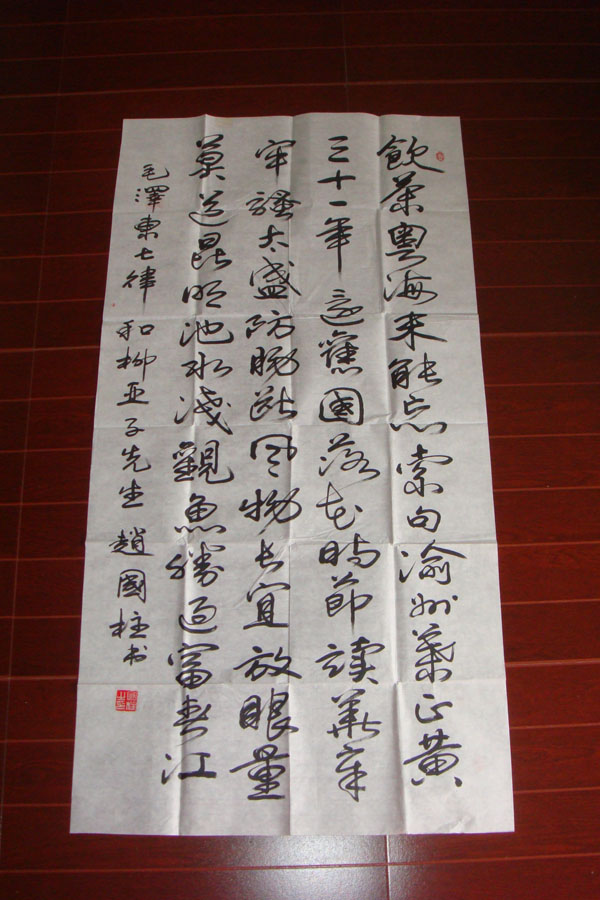 飲茶粵海未能忘索句渝州葉正黃
三十一年還舊國落花時節讀華章
牢騷太盛防腸斷風物長宜放眼量
莫道昆明池水淺觀魚勝過富春江
毛澤東七律 和柳亚子先生 趙國柱书